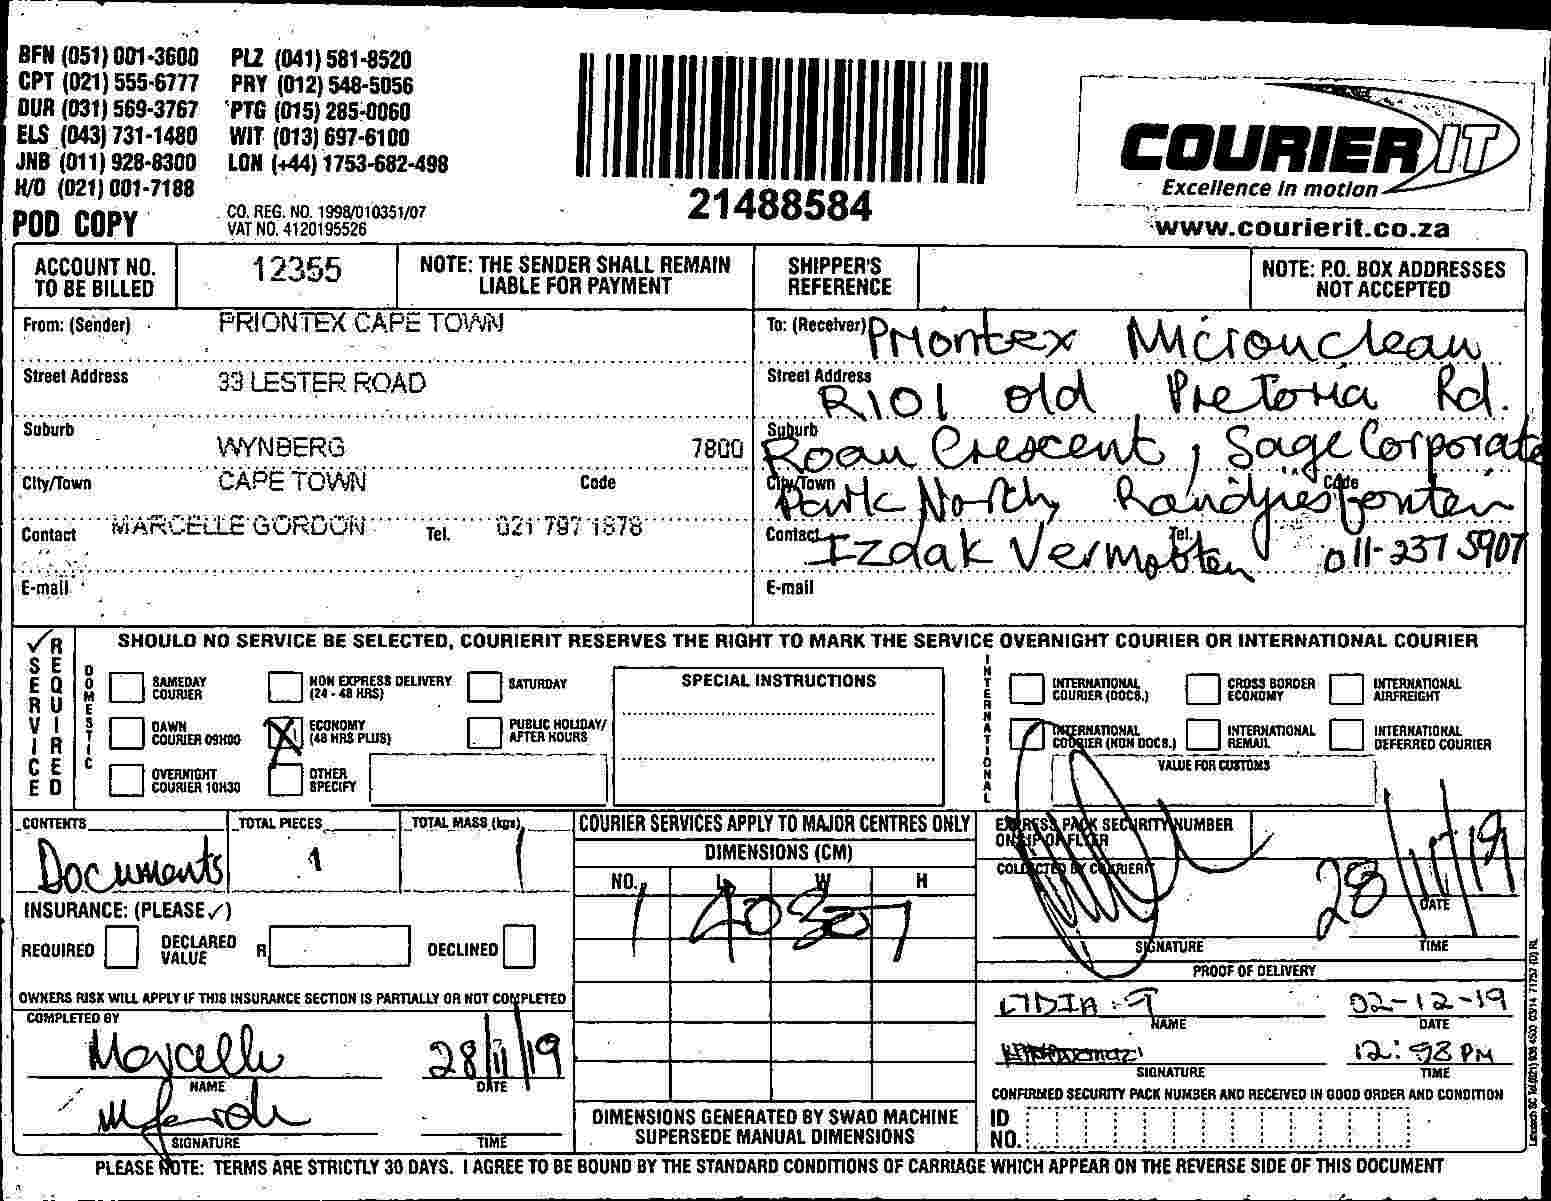 BFN (051) 001-3600 PLZ (041) 581-8520
CPT (021) 555-6777 PRY (012) 548-5056
DUR (031) 569-3767 PTG (015) 285-0060
ELS (043) 731-1480 WIT (013) 697-6100
JNB (011) 928-8300 LON (+44) 1753-682-498
H/O (021) 001-7188
POD COPY
CO. REG. NO. 1998/010351/07
VAT NO. 4120195526
21488584
COURIER IT
Excellence in motion
www.courierit.co.za
ACCOUNT NO. TO BE BILLED
12355
NOTE: THE SENDER SHALL REMAIN LIABLE FOR PAYMENT
SHIPPER'S REFERENCE
NOTE: P.O. BOX ADDRESSES NOT ACCEPTED
From: (Sender) PRIONTEX CAPE TOWN
Street Address 33 LESTER ROAD
Suburb WYNBERG 7800
City/Town CAPE TOWN Code
Contact MARCELLE GORDON Tel. 021 797 1878
E-mail
To: (Receiver) Priontex Micronclean
Street Address R101 old Pretoria Rd.
Suburb Roan Crescent, Sage Corporate
City/Town Park North, Randjiesfontein Code
Contact Izdak Vermooten Tel. 011-237 5907
E-mail
✓ SERVICE REQUIRED
SHOULD NO SERVICE BE SELECTED, COURIERIT RESERVES THE RIGHT TO MARK THE SERVICE OVERNIGHT COURIER OR INTERNATIONAL COURIER
DOMESTIC
SAMEDAY COURIER
NON EXPRESS DELIVERY (24 - 48 HRS)
SATURDAY
DAWN COURIER 09H00
X ECONOMY (48 HRS PLUS)
PUBLIC HOLIDAY/ AFTER HOURS
OVERNIGHT COURIER 10H30
OTHER SPECIFY
SPECIAL INSTRUCTIONS
INTERNATIONAL
INTERNATIONAL COURIER (DOCS.)
CROSS BORDER ECONOMY
INTERNATIONAL AIRFREIGHT
INTERNATIONAL COURIER (NON DOCS.)
INTERNATIONAL REMAIL
INTERNATIONAL DEFERRED COURIER
VALUE FOR CUSTOMS
CONTENTS Documents
TOTAL PIECES 1
TOTAL MASS (kgs) 1
INSURANCE: (PLEASE ✓)
REQUIRED DECLARED VALUE R DECLINED
OWNERS RISK WILL APPLY IF THIS INSURANCE SECTION IS PARTIALLY OR NOT COMPLETED
COMPLETED BY
Marcelle 28/11/19
NAME DATE
SIGNATURE TIME
COURIER SERVICES APPLY TO MAJOR CENTRES ONLY
DIMENSIONS (CM)
NO. L W H
1 40 30 7
DIMENSIONS GENERATED BY SWAD MACHINE SUPERSEDE MANUAL DIMENSIONS
EXPRESS PACK SECURITY NUMBER ON ZIP OF FLYER
COLLECTED BY COURIERIT
28/11/19
DATE
SIGNATURE TIME
PROOF OF DELIVERY
LYDIA 02-12-19
NAME DATE
PM
SIGNATURE TIME
CONFIRMED SECURITY PACK NUMBER AND RECEIVED IN GOOD ORDER AND CONDITION
ID NO.
PLEASE NOTE: TERMS ARE STRICTLY 30 DAYS. I AGREE TO BE BOUND BY THE STANDARD CONDITIONS OF CARRIAGE WHICH APPEAR ON THE REVERSE SIDE OF THIS DOCUMENT